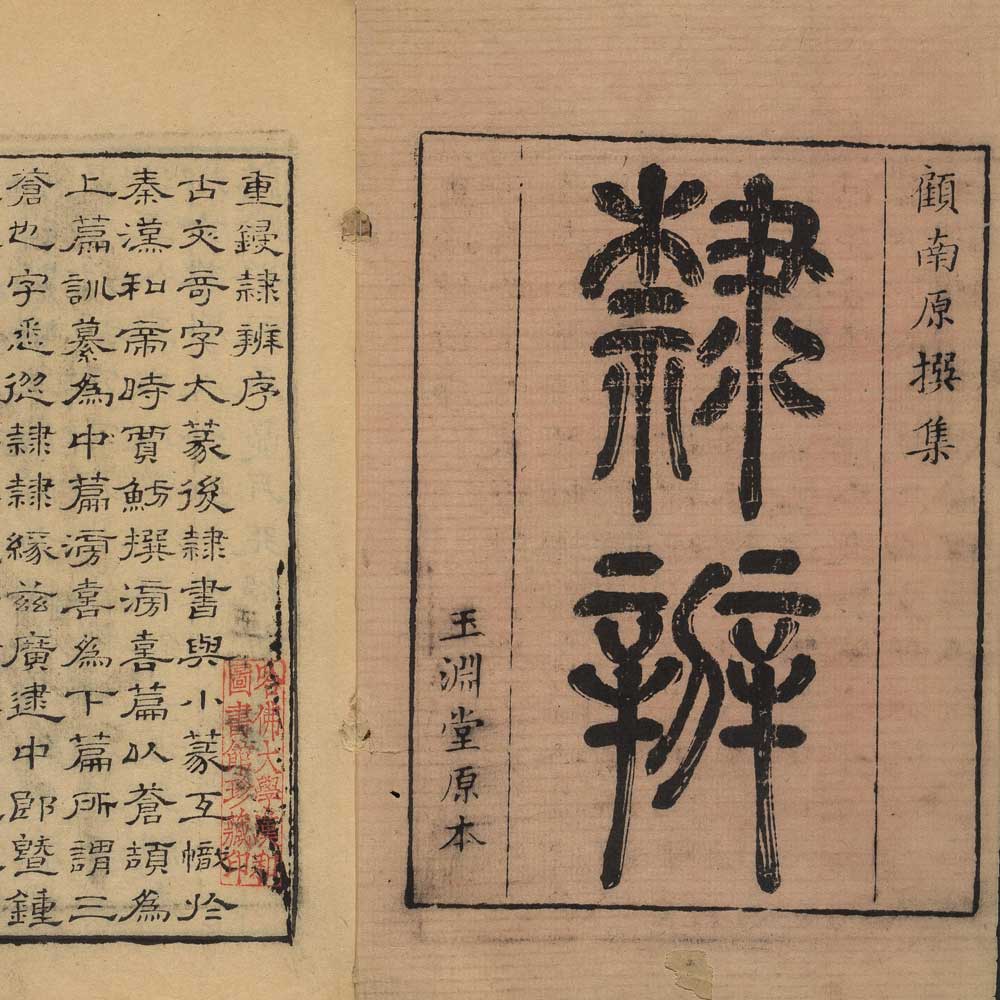 顧南原撰集
隸辨
玉淵堂原本
重鋟隸辨序
古文奇字大篆後隸書與小篆互幟於
秦漢和帝時賈魴撰滂喜篇以蒼頡為
上篇訓纂為中篇滂喜為下篇所謂三
蒼也字悉從隸隸緣茲廣逮中郎暨鍾
哈佛大學漢和
圖書館珍藏印